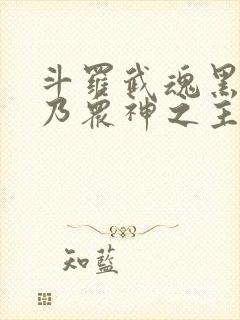 斗羅武魂黑
乃眾神之主
知藍